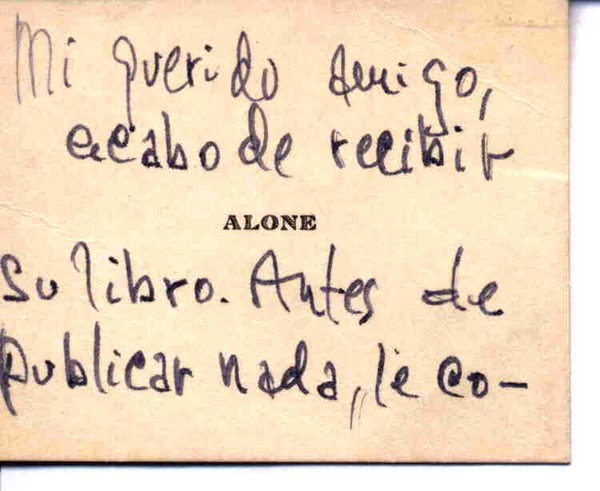 Mi querido amigo,
acabo de recibir
ALONE
su libro. Antes de
publicar nada, le co-